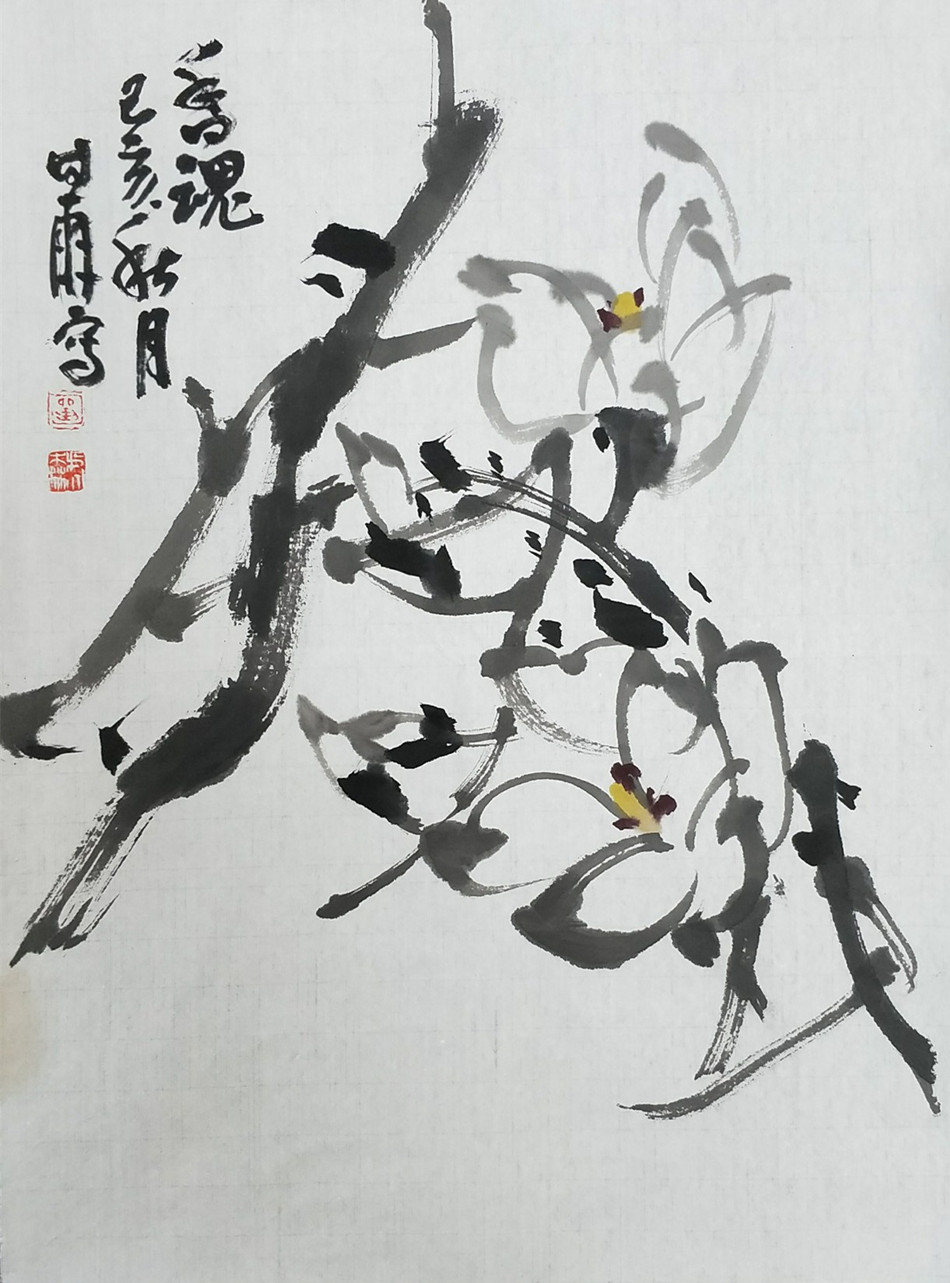 香魂
己亥秋月
时雨写